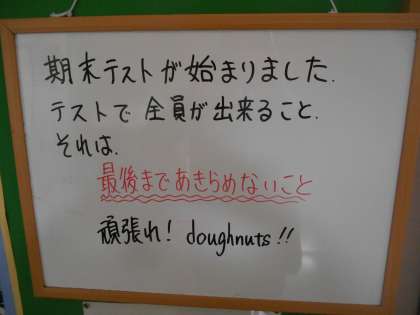 期末テストが始まりました.
テストで 全員が出来ること.
それは.
最後まであきらめないこと
頑張れ! doughnuts!!